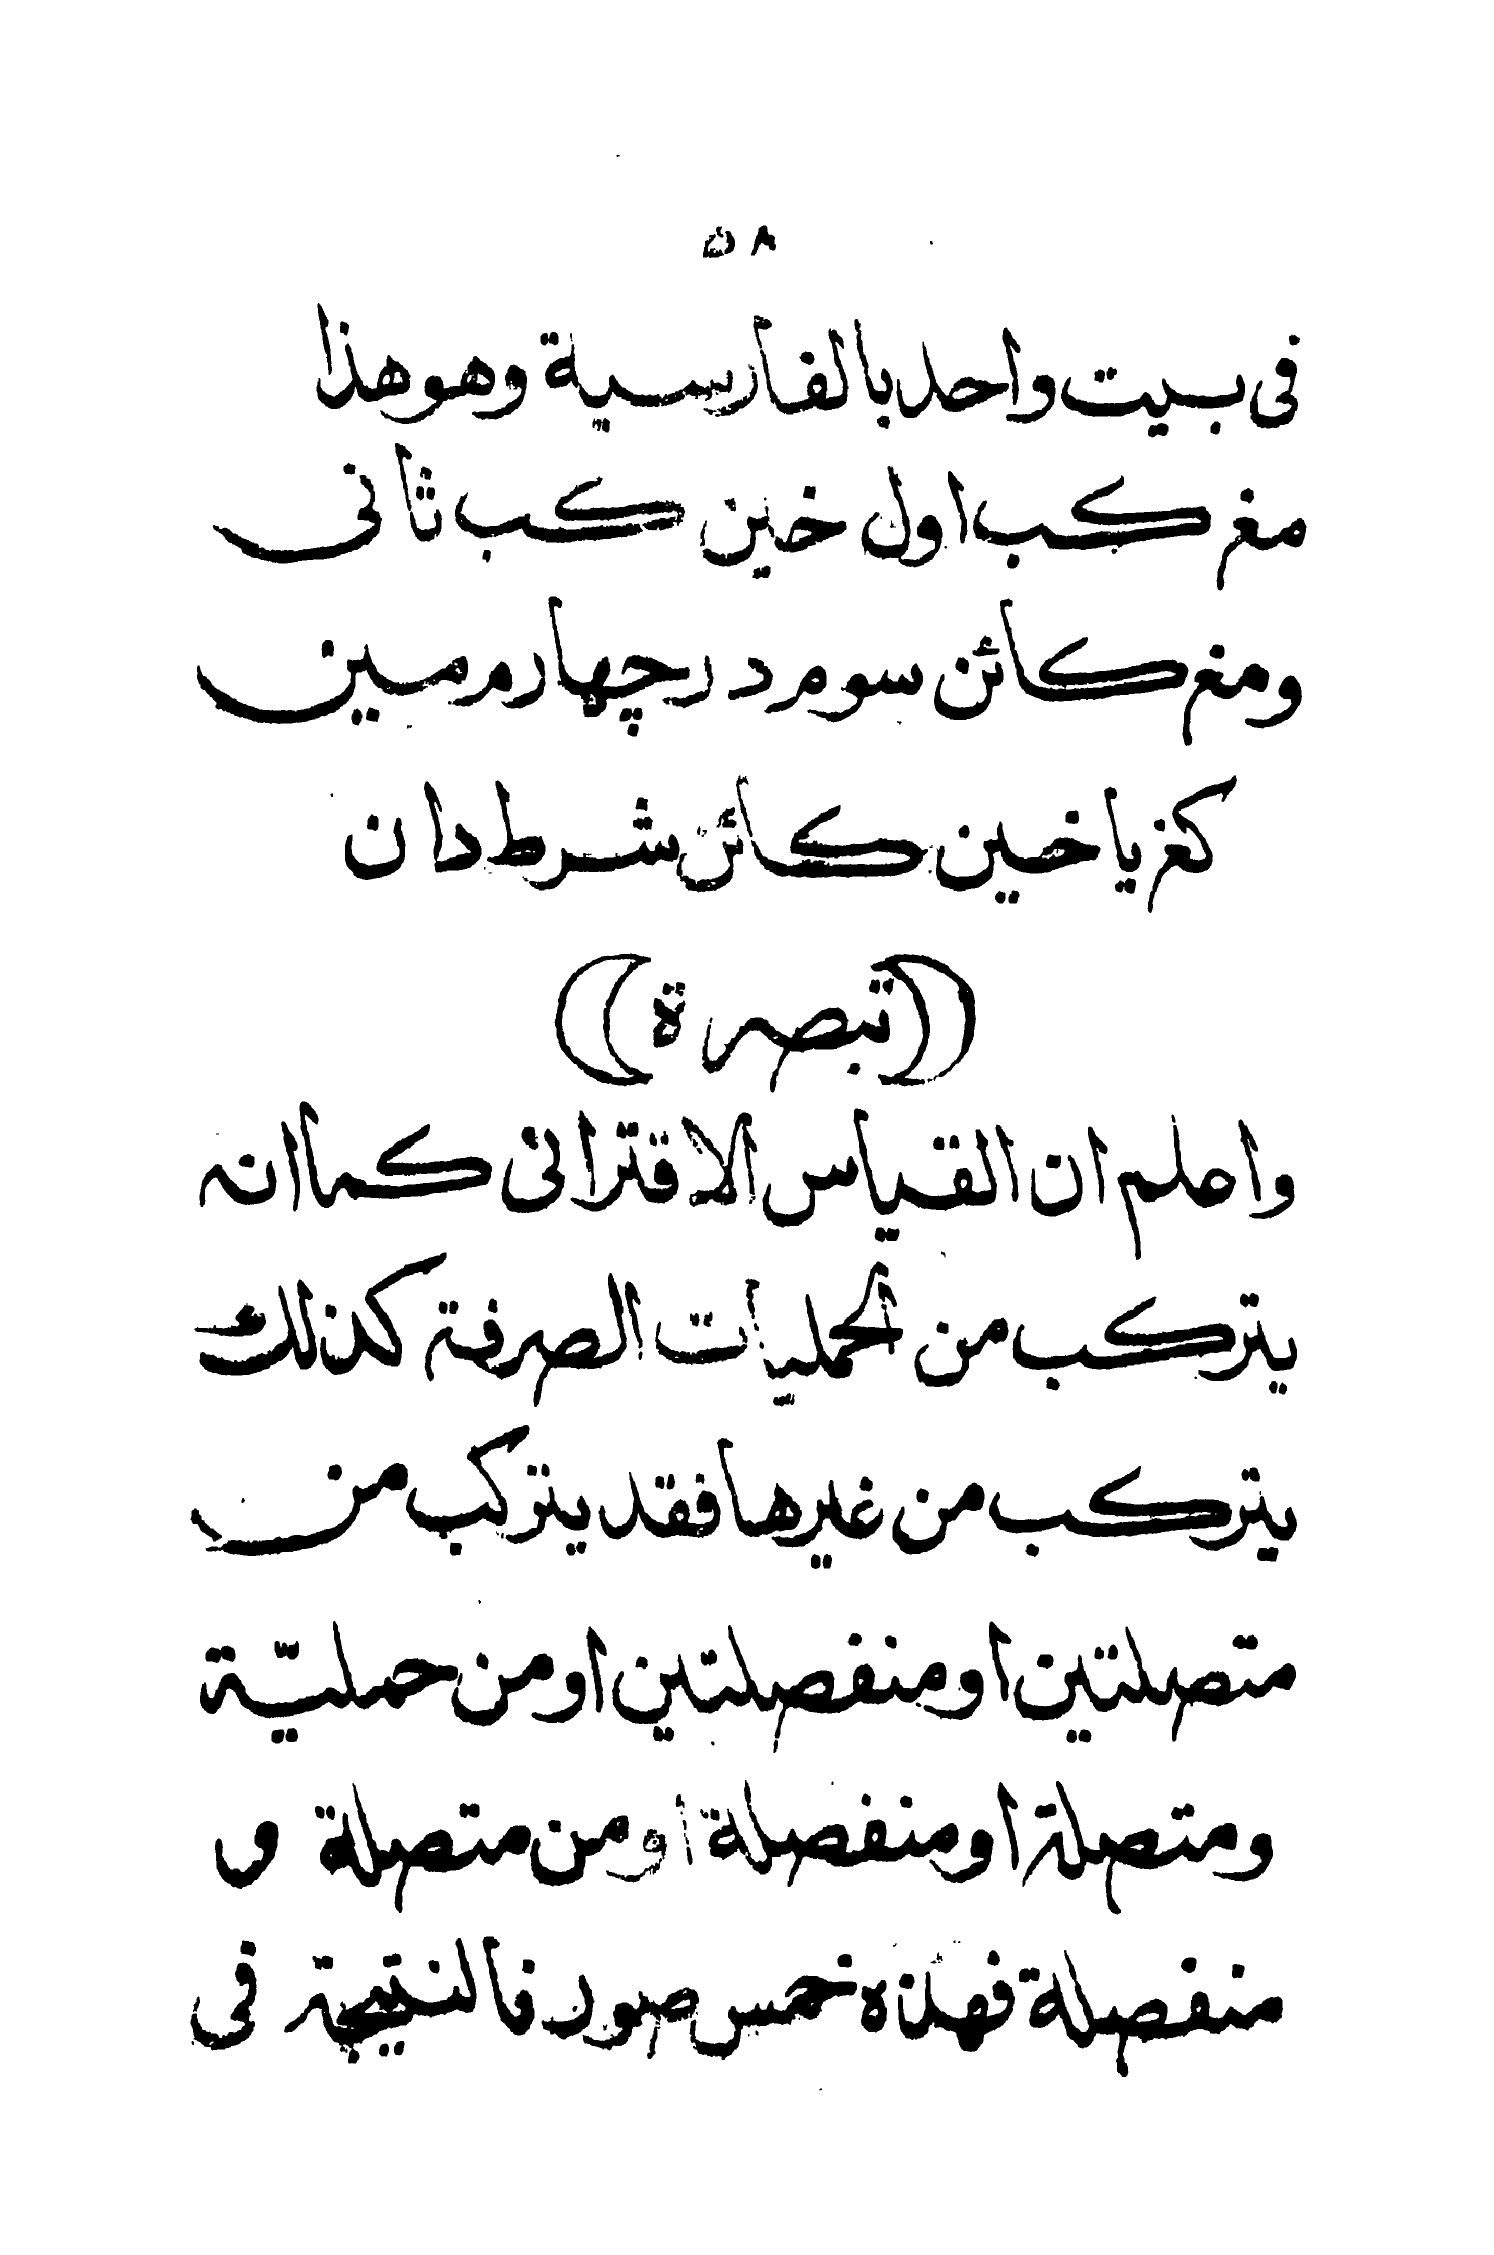 ٥٨
فى بيت واحد بالفارسية وهو هذا
مغ كب اول خين كب ثانى
ومغ كائن سوم در چهارم مين
كغ يا خين كائن شرط دان
(تبصرة)
واعلم ان القياس الاقترانى كما انه
يتركب من الحمليات الصرفة كذلك
يتركب من غيرها فقد يتركب من
متصلتين او منفصلتين او من حمليّة
ومتصلة او منفصلة او من متصلة و
منفصلة فهذه خمس صور فالنتيجة فى